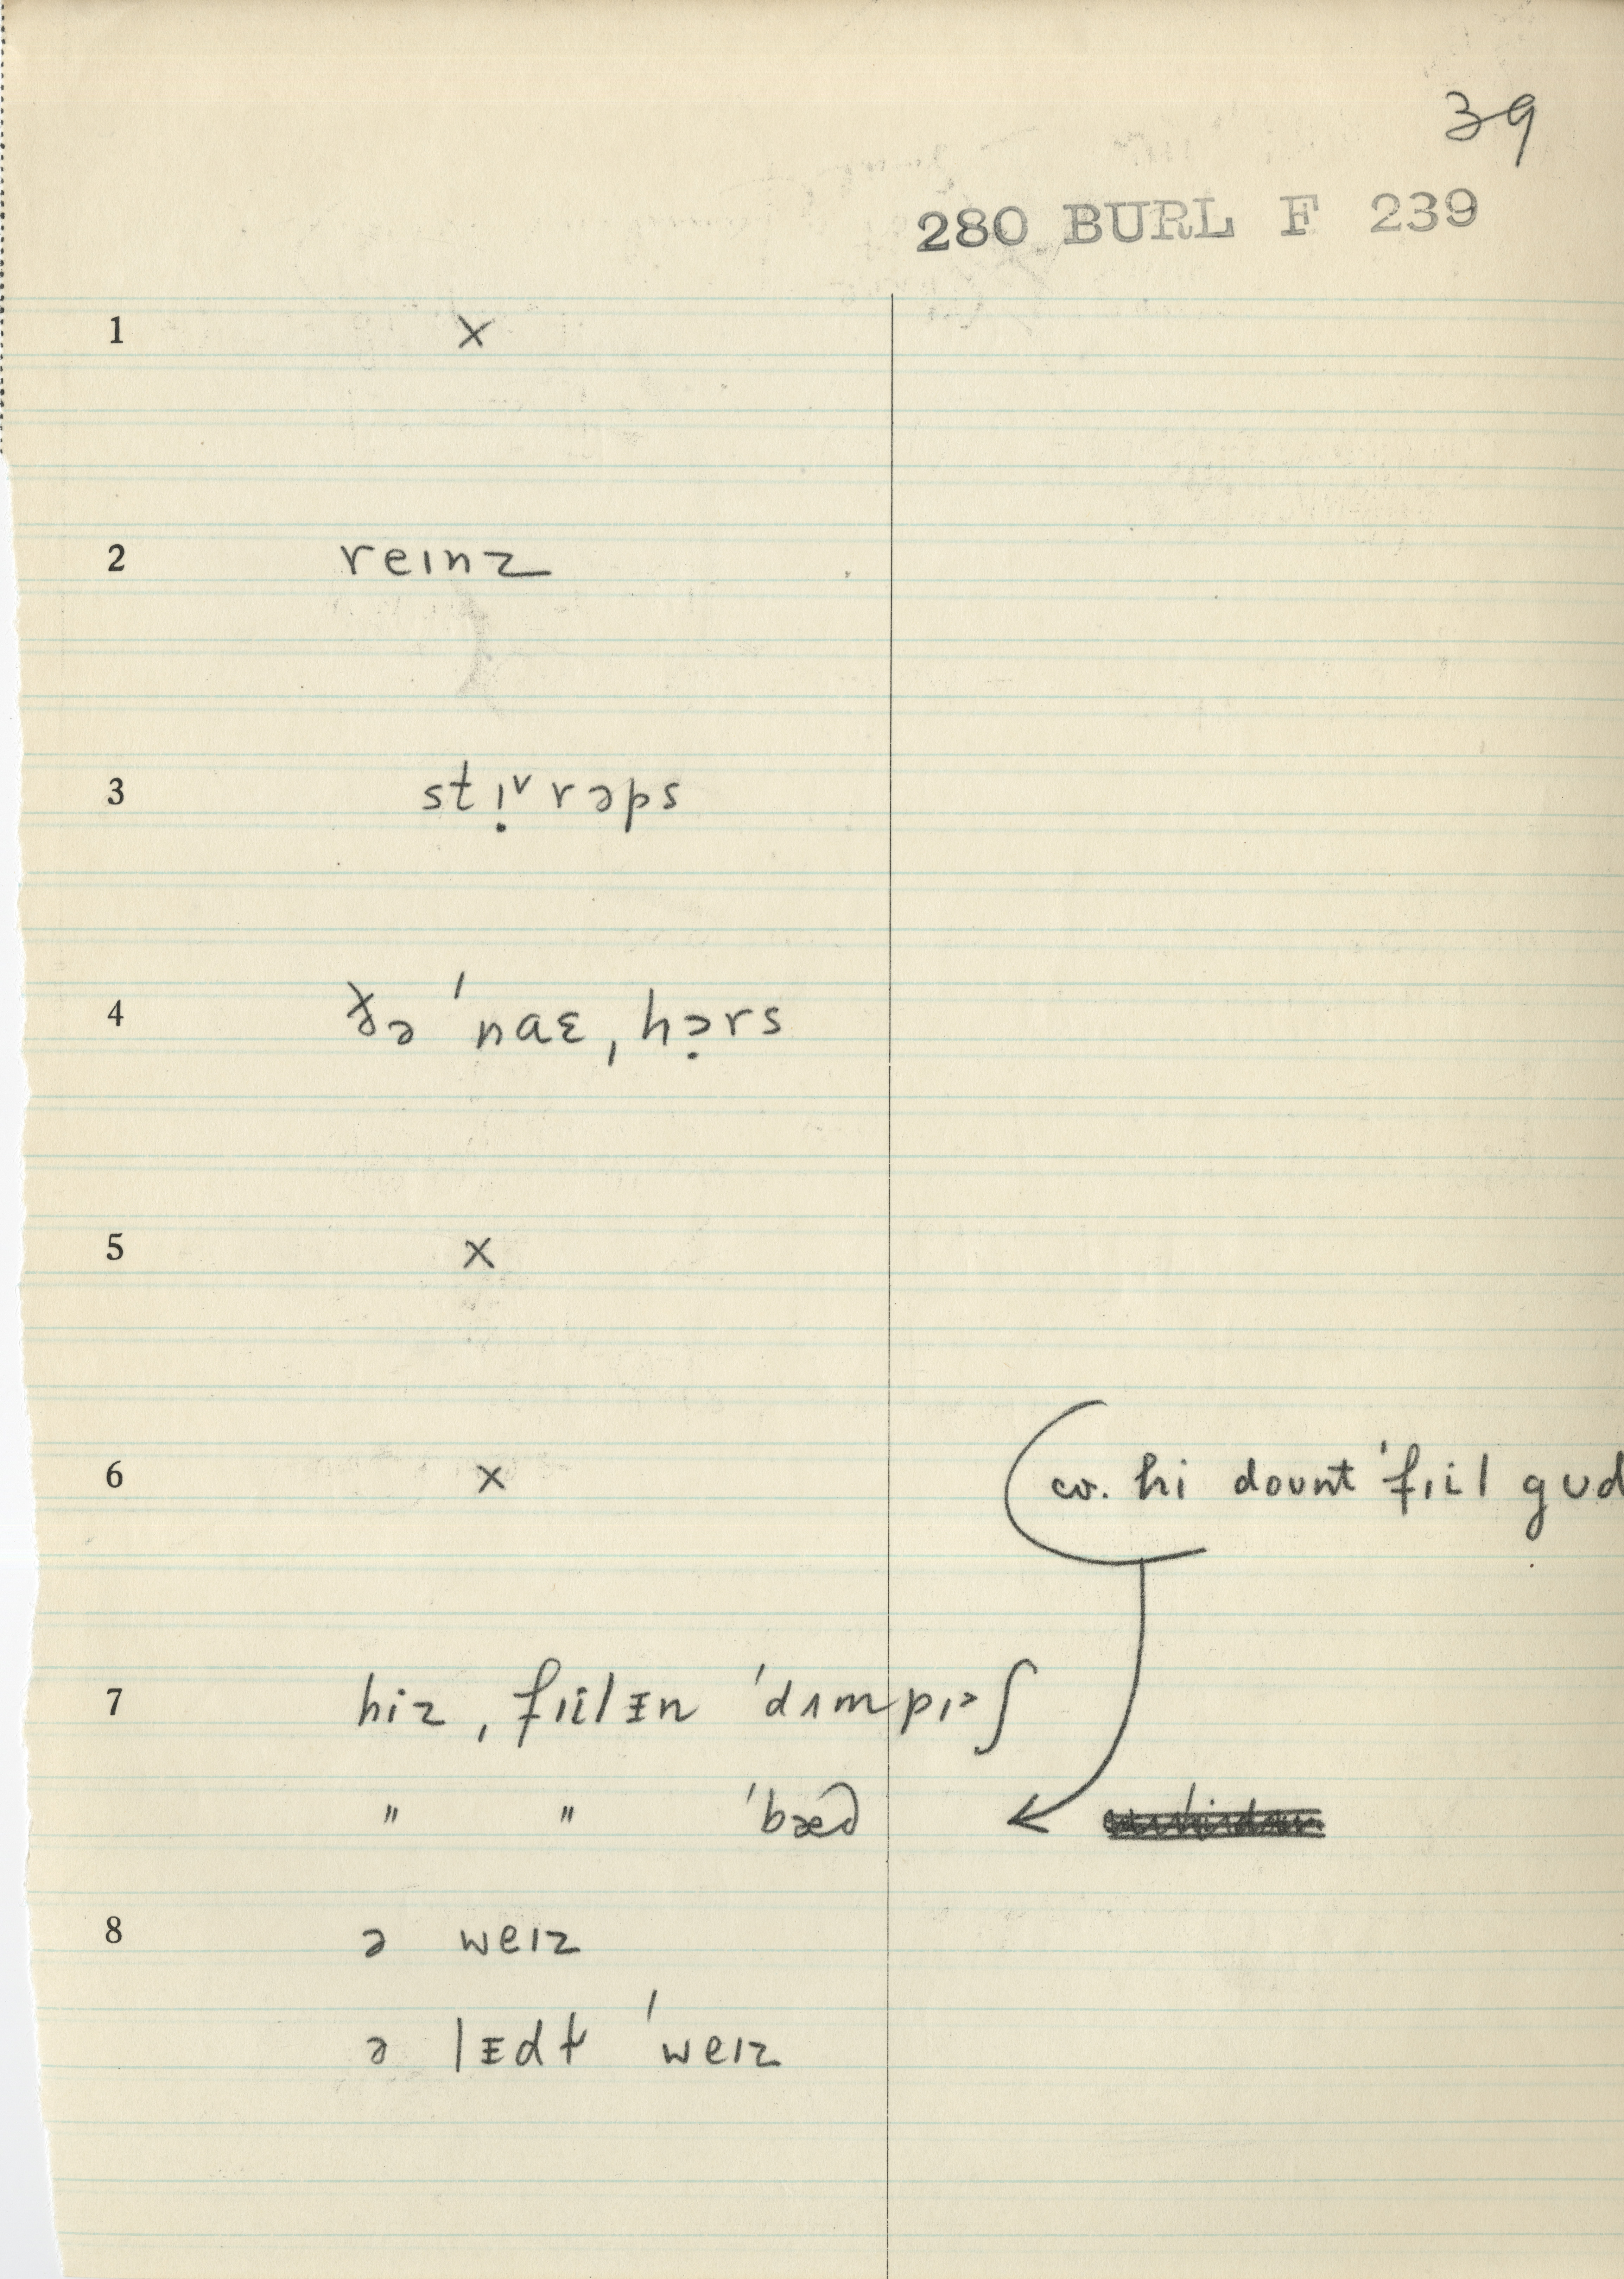 39
280 BURL F 239
1 x
2 reɪnz
3 stɪ̣ᵛrəps
4 ðə ˈnaɛˌhə̣rs
5 x
6 x cv. hi dount ˈfɪil gud
7 hiz ˌfɪilᵻn ˈdʌmpɪʃ
" " ˈbæd
8 ə weɪz
ə lᵻdt ˈweɪz